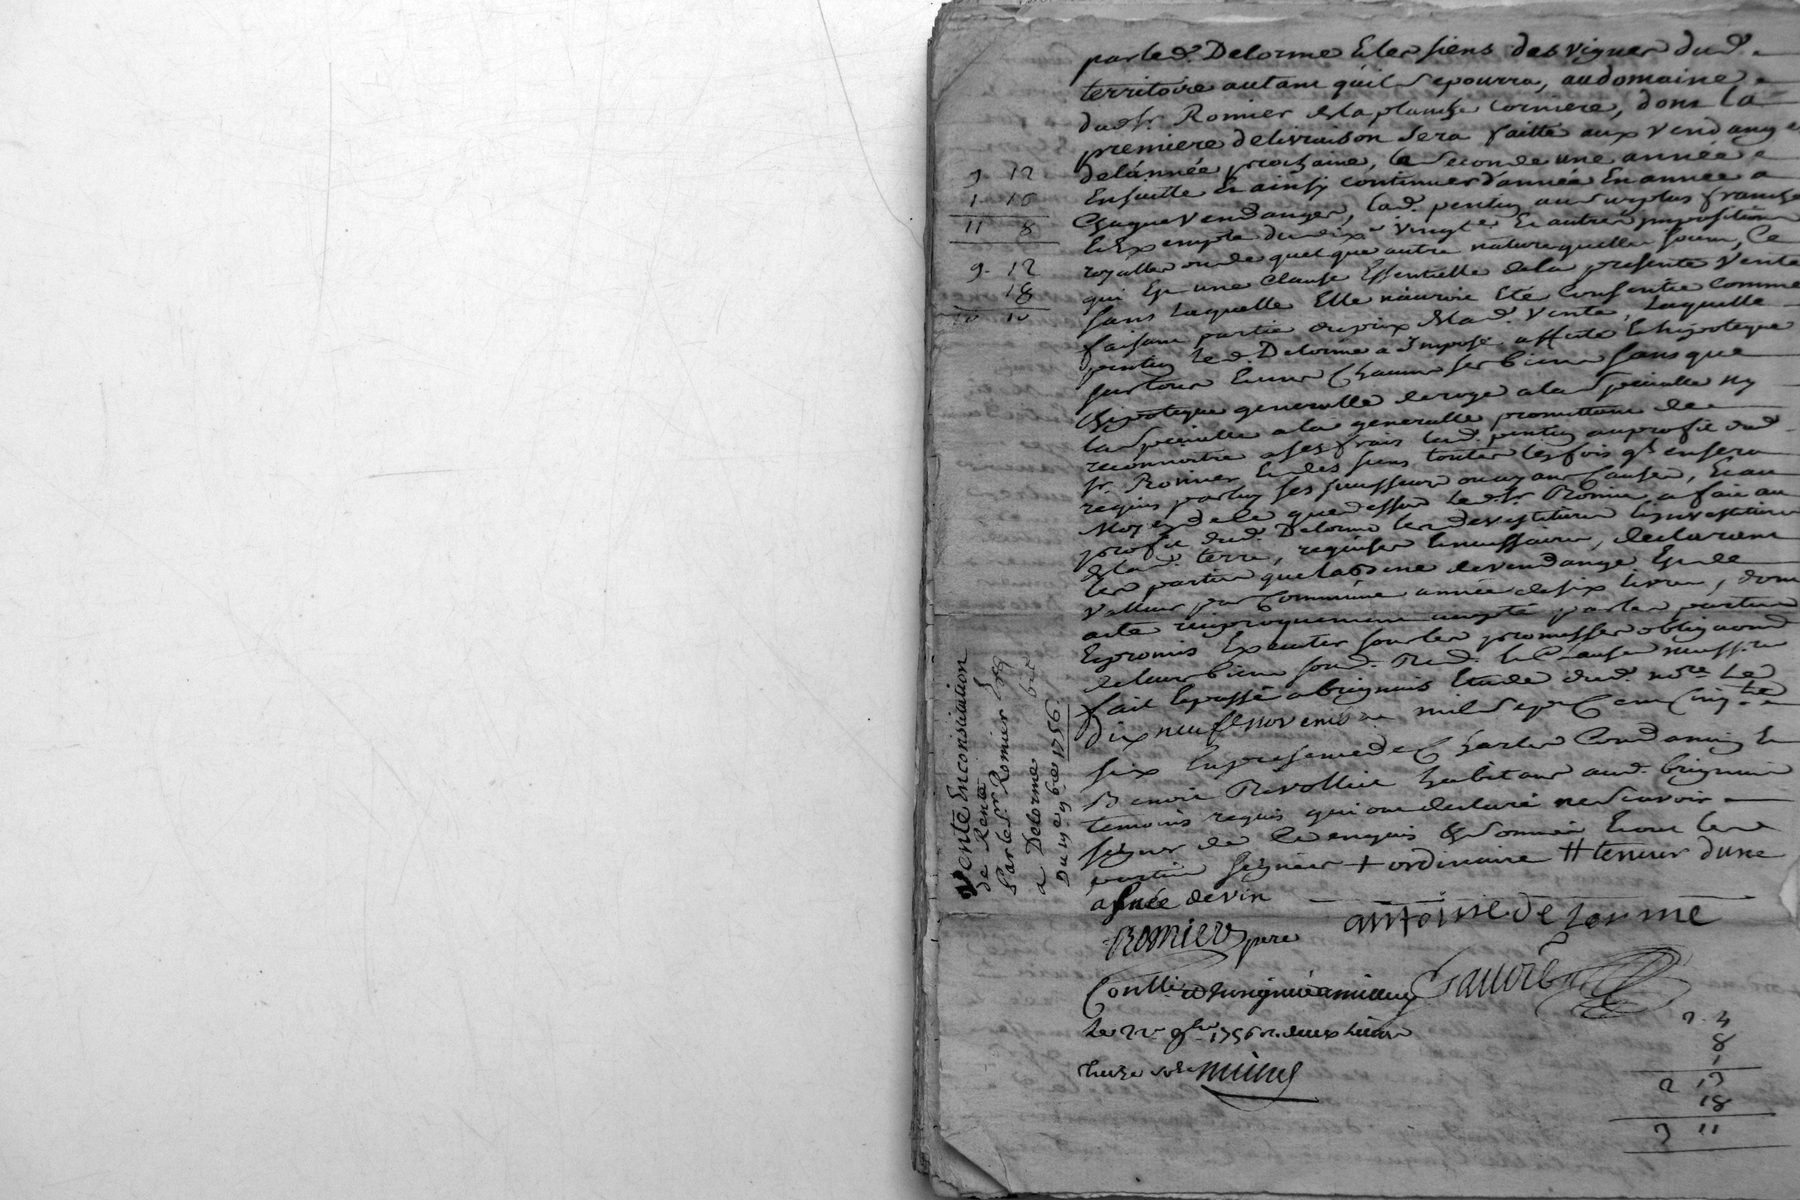 par led. Delorme & les siens des vignes dud.
territoire autant quil se pourra, au domaine
dud. Sr. Romier de la planche Corniere, dont la
premiere delivraison sera faitte aux vendanges
de l'année prochaine, la seconde une année
Ensuitte & ainsy continuer d'année En année a
Chaque vendanges, lad. pention au surplus franche
& Exempte du dixe. vingte. & autres impositions
royalles ou de quelque autre nature quelles soient, Ce
qui Est une Clause Essentielle de la presente Vente
sans laquelle Elle n'auroit Eté Consentie Comme
faisant partie du prix de lad. Vente, laquelle
pention led. Delorme a Imposé affecté & hipoteque
sur tous & uns Chacuns ses biens sans que
l'hipoteque generalle deroge a la Specialle ny
la Specialle a la generalle promettant de
reconnoitre a ses frais lad. pention au profit dud.
Sr. Romier & des siens toutes les fois ql. en sera
requis par luy ses successeurs ou ayant Cause, & au
Moyen de ce que dessus led. Sr. Romier a fait au
profit dud. Delorme les devestiture & investiture
de lad. terre, requises & necessaires, declarant
les parties que l'asnée de vendange Est de
Valleur par Commune année de six livres, dont
acte reciproquement accepté par les parties
& promis Executer sous les promesses obligaons
de leurs biens soud. Red. & Clauses necess.res
fait & passé a brignais Etude dud. nore. Le
dix neuf novembre mil sept Cent Cinqte.
six En presence de Charles Condamin &
Benoit Revollier habitant aud. brignais
temoins requis qui ont declaré ne Scavoir
signer de Ce enquis & Sommés & ont les
parties Signées + ordinaire # teneur d'une
asnée de vin
Romier pere antoine de lorme
Contllé
Le 22e 9bre 1756
9 12
1 16
11 8
9 12
18
10 10
Vente En constitution
de Rente
Par le Sr. Romier
a Delorme
Du 19e 9bre 1756.
2 4
8
1
2 13
18
3 11